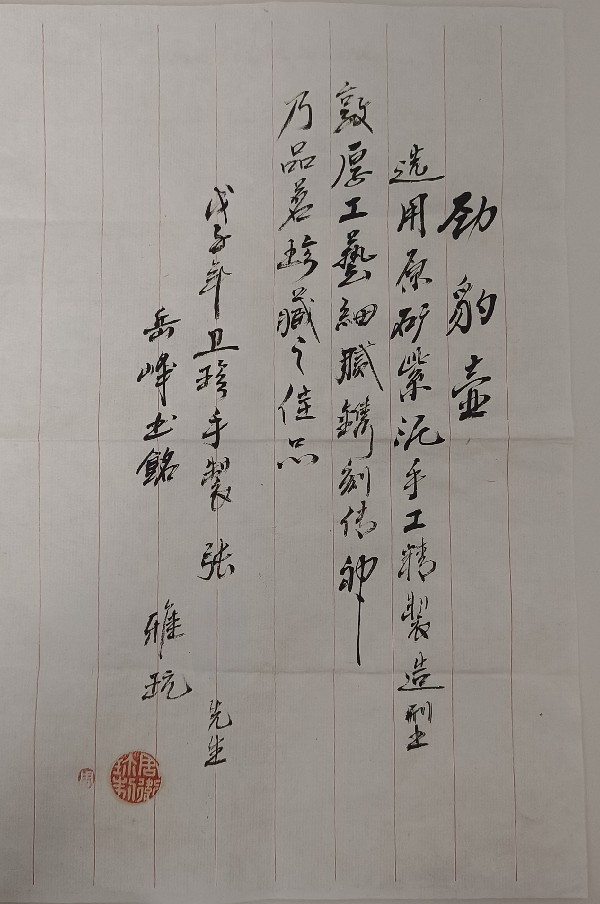 劲豹壶
选用原矿紫泥手工精製造型
敦厚工藝细腻鐫刻传神
乃品茗珍藏之佳品
戊子年卫珍手製 张 先生
岳峰书銘 雅玩
周